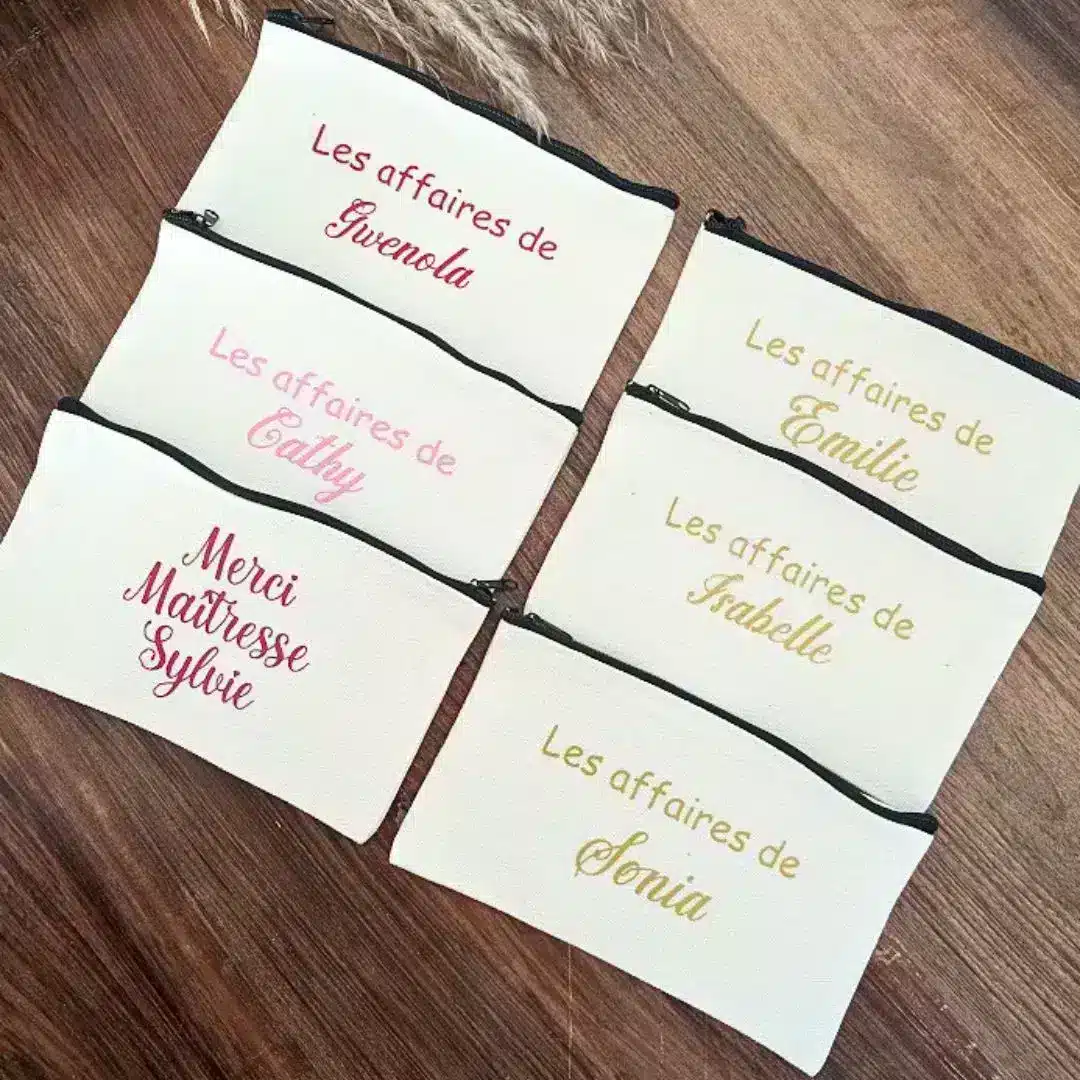 Les affaires de
Gwenola
Les affaires de
Cathy
Merci
Maîtresse
Sylvie
Les affaires de
Emilie
Les affaires de
Isabelle
Les affaires de
Sonia